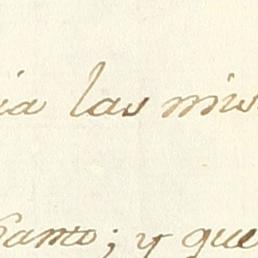 ia las mis
Santo; y que